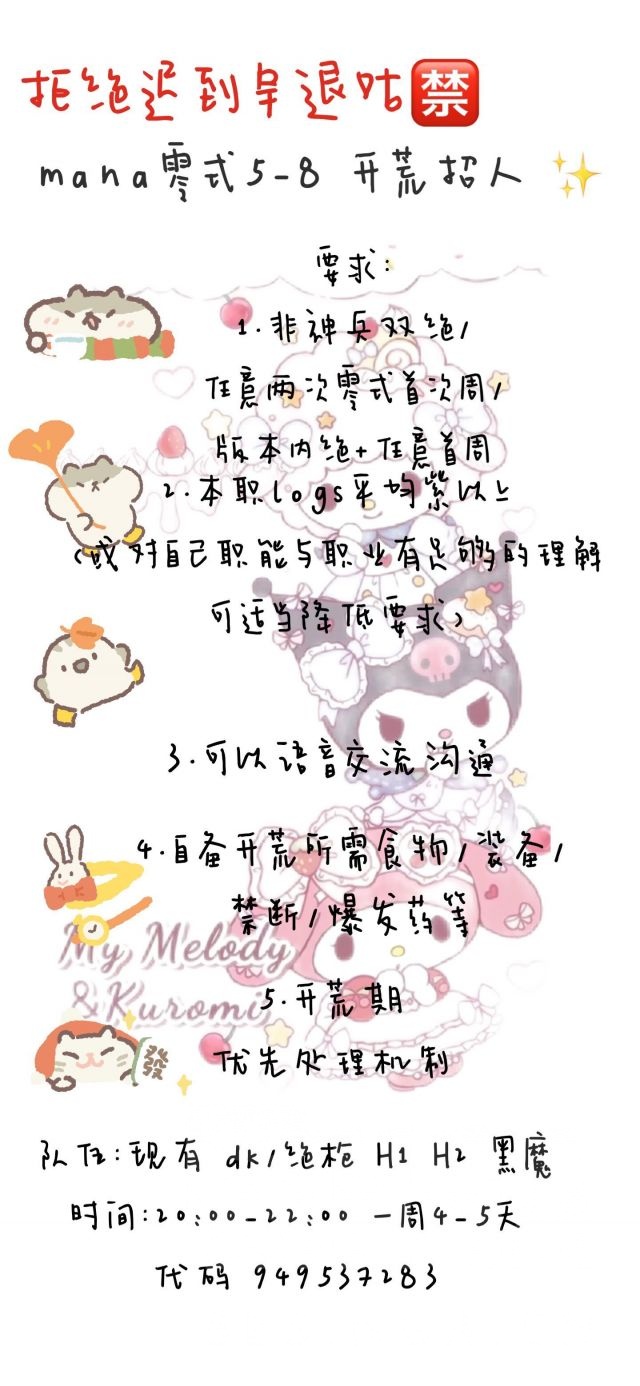 拒绝迟到早退咕🈲
mana零式5-8 开荒招人 ✨
要求:
1.非神兵双绝/
任意两次零式首次周/
版本内绝+任意首周
2.本职logs平均紫以上
(或对自己职能与职业有足够的理解
可适当降低要求)
3.可以语音交流沟通
4.自备开荒所需食物/装备/
禁断/爆发药等
My Melody
&Kuromi
5.开荒期
优先处理机制
發
队伍:现有 dk/绝枪 H1 H2 黑魔
时间:20:00-22:00 一周4-5天
代码 949537283